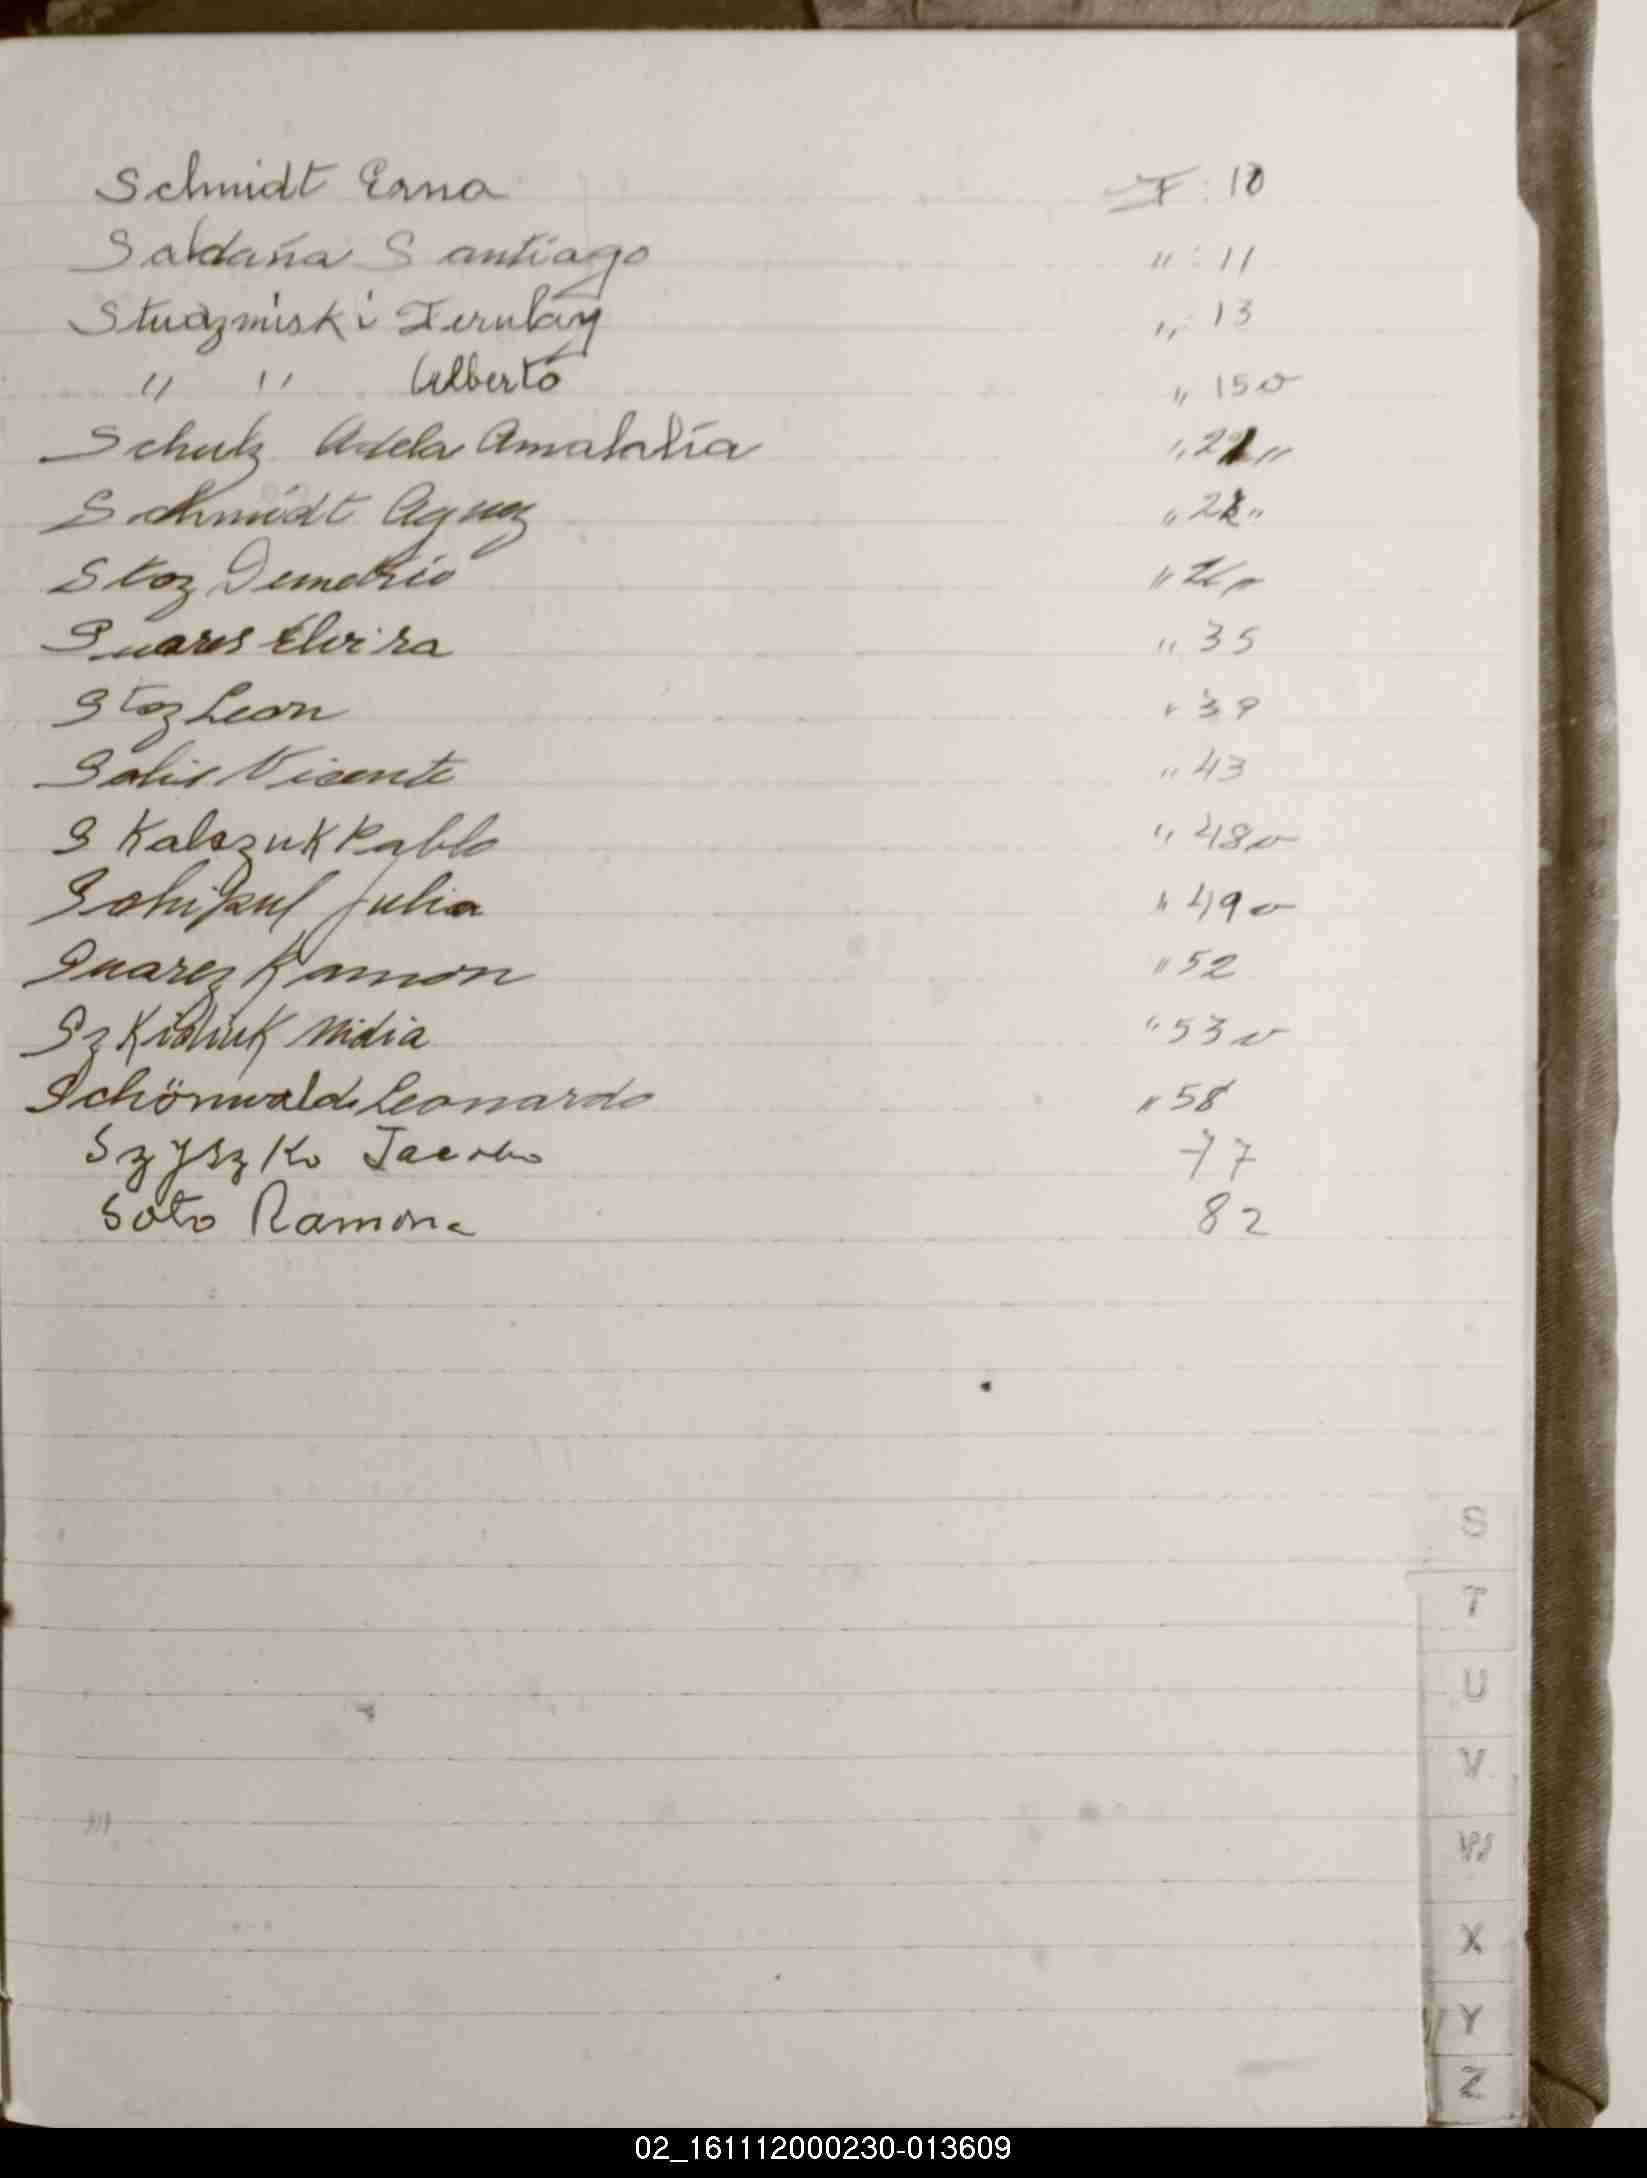 Schmidt Erna F: 10
Saldaña Santiago " : 11
" " Alberto " 15 v
Schulz Adela Amalalia " 21 "
Schmidt " 22 "
Stoz Demetrio "
Suares Elvira " 35
Stoz Leon " 39
Solis Vicente " 43
S Kalszuk Pablo " 48 v
Schipul Julia " 49 v
Suarez Ramon " 52
Nidia " 53 v
Schönwald Leonardo " 58
Szyszko Jacobo 77
Soto Ramona 82
S
T
U
V
W
X
Y
Z
02_161112000230-013609